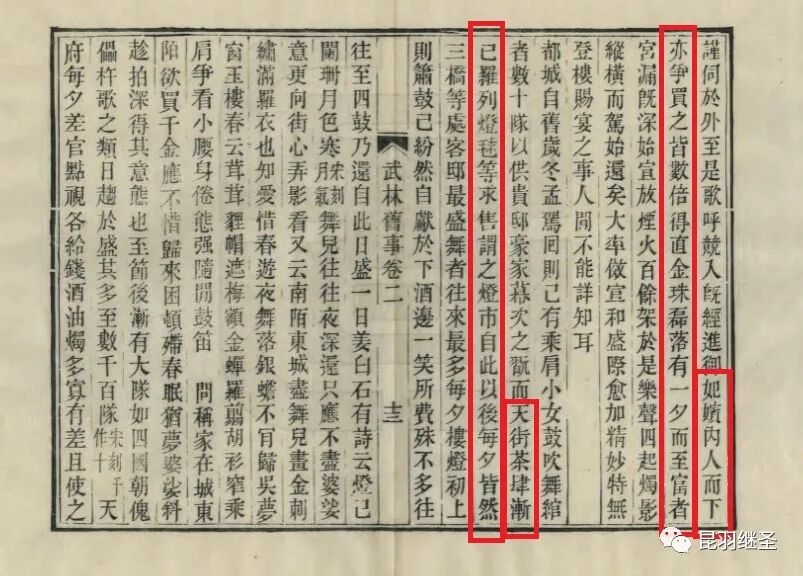 謹伺於外至是歌呼競入旣經進御妃嬪內人而下
亦爭買之皆數倍得直金珠磊落有一夕而至富者
宮漏旣深始宣放煙火百餘架於是樂聲四起燭影
縱橫而駕始還矣大率倣宣和盛際愈加精妙特無
登樓賜宴之事人間不能詳知耳
都城自舊歲冬孟駕回則已有乘肩小女鼓吹舞綰
者數十隊以供貴邸豪家幕次之翫而天街茶肆漸
已羅列燈毬等求售謂之燈市自此以後每夕皆然
三橋等處客邸最盛舞者往來最多每夕樓燈初上
則簫鼓已紛然自獻於下酒邊一笑所費殊不多往
武林舊事卷二
十三
往至四鼓乃還自此日盛一日姜白石有詩云燈已
闌珊月色寒宋刻月氣舞兒往往夜深還只應不盡婆娑
意更向街心弄影看又云南陌東城盡舞兒畫金刺
繡滿羅衣也知愛惜春遊夜舞落銀蟾不肯歸吳夢
窗玉樓春云茸茸貍帽遮梅額金蟬羅翦胡衫窄乘
肩爭看小腰身倦態强隨閒鼓笛 問稱家在城東
陌欲買千金應不惜歸來困頓殢春眠猶夢婆娑斜
趁拍深得其意態也至節後漸有大隊如四國朝傀
儡杵歌之類日趨於盛其多至數千百隊宋刻千作十 天
府每夕差官點視各給錢酒油燭多寡有差且使之
昆羽继圣